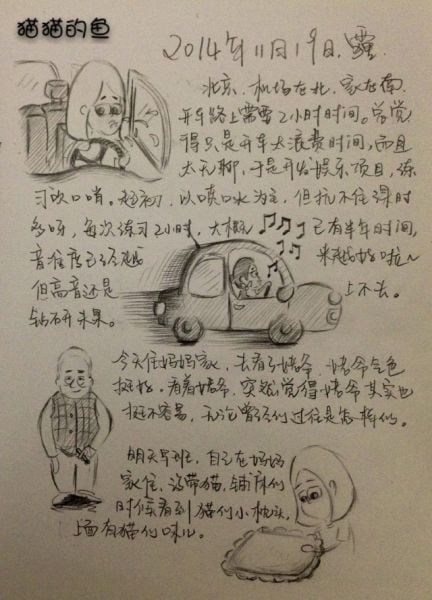 猫猫的鱼
2014年11月19日.
北京.机场在北.家在南.
开车路上需要2小时时间。常觉
得只是开车太浪费时间,而且
太无聊,于是开发娱乐项目,练
习吹口哨。起初,以喷口水为主,但抗不住课时
多呀,每次练习2小时,大概 已有半年时间,
音准度已经越 来越好啦~
但高音还是 上不去。
今天住妈妈家,去看了姥爷,姥爷气色
挺好。看着姥爷,突然觉得姥爷其实也
挺不容易,无论曾经的过往是怎样的。
明天早班,自己在妈妈
家住,没带猫,铺床的
时候看到猫的小枕头,
上面有猫的味儿。